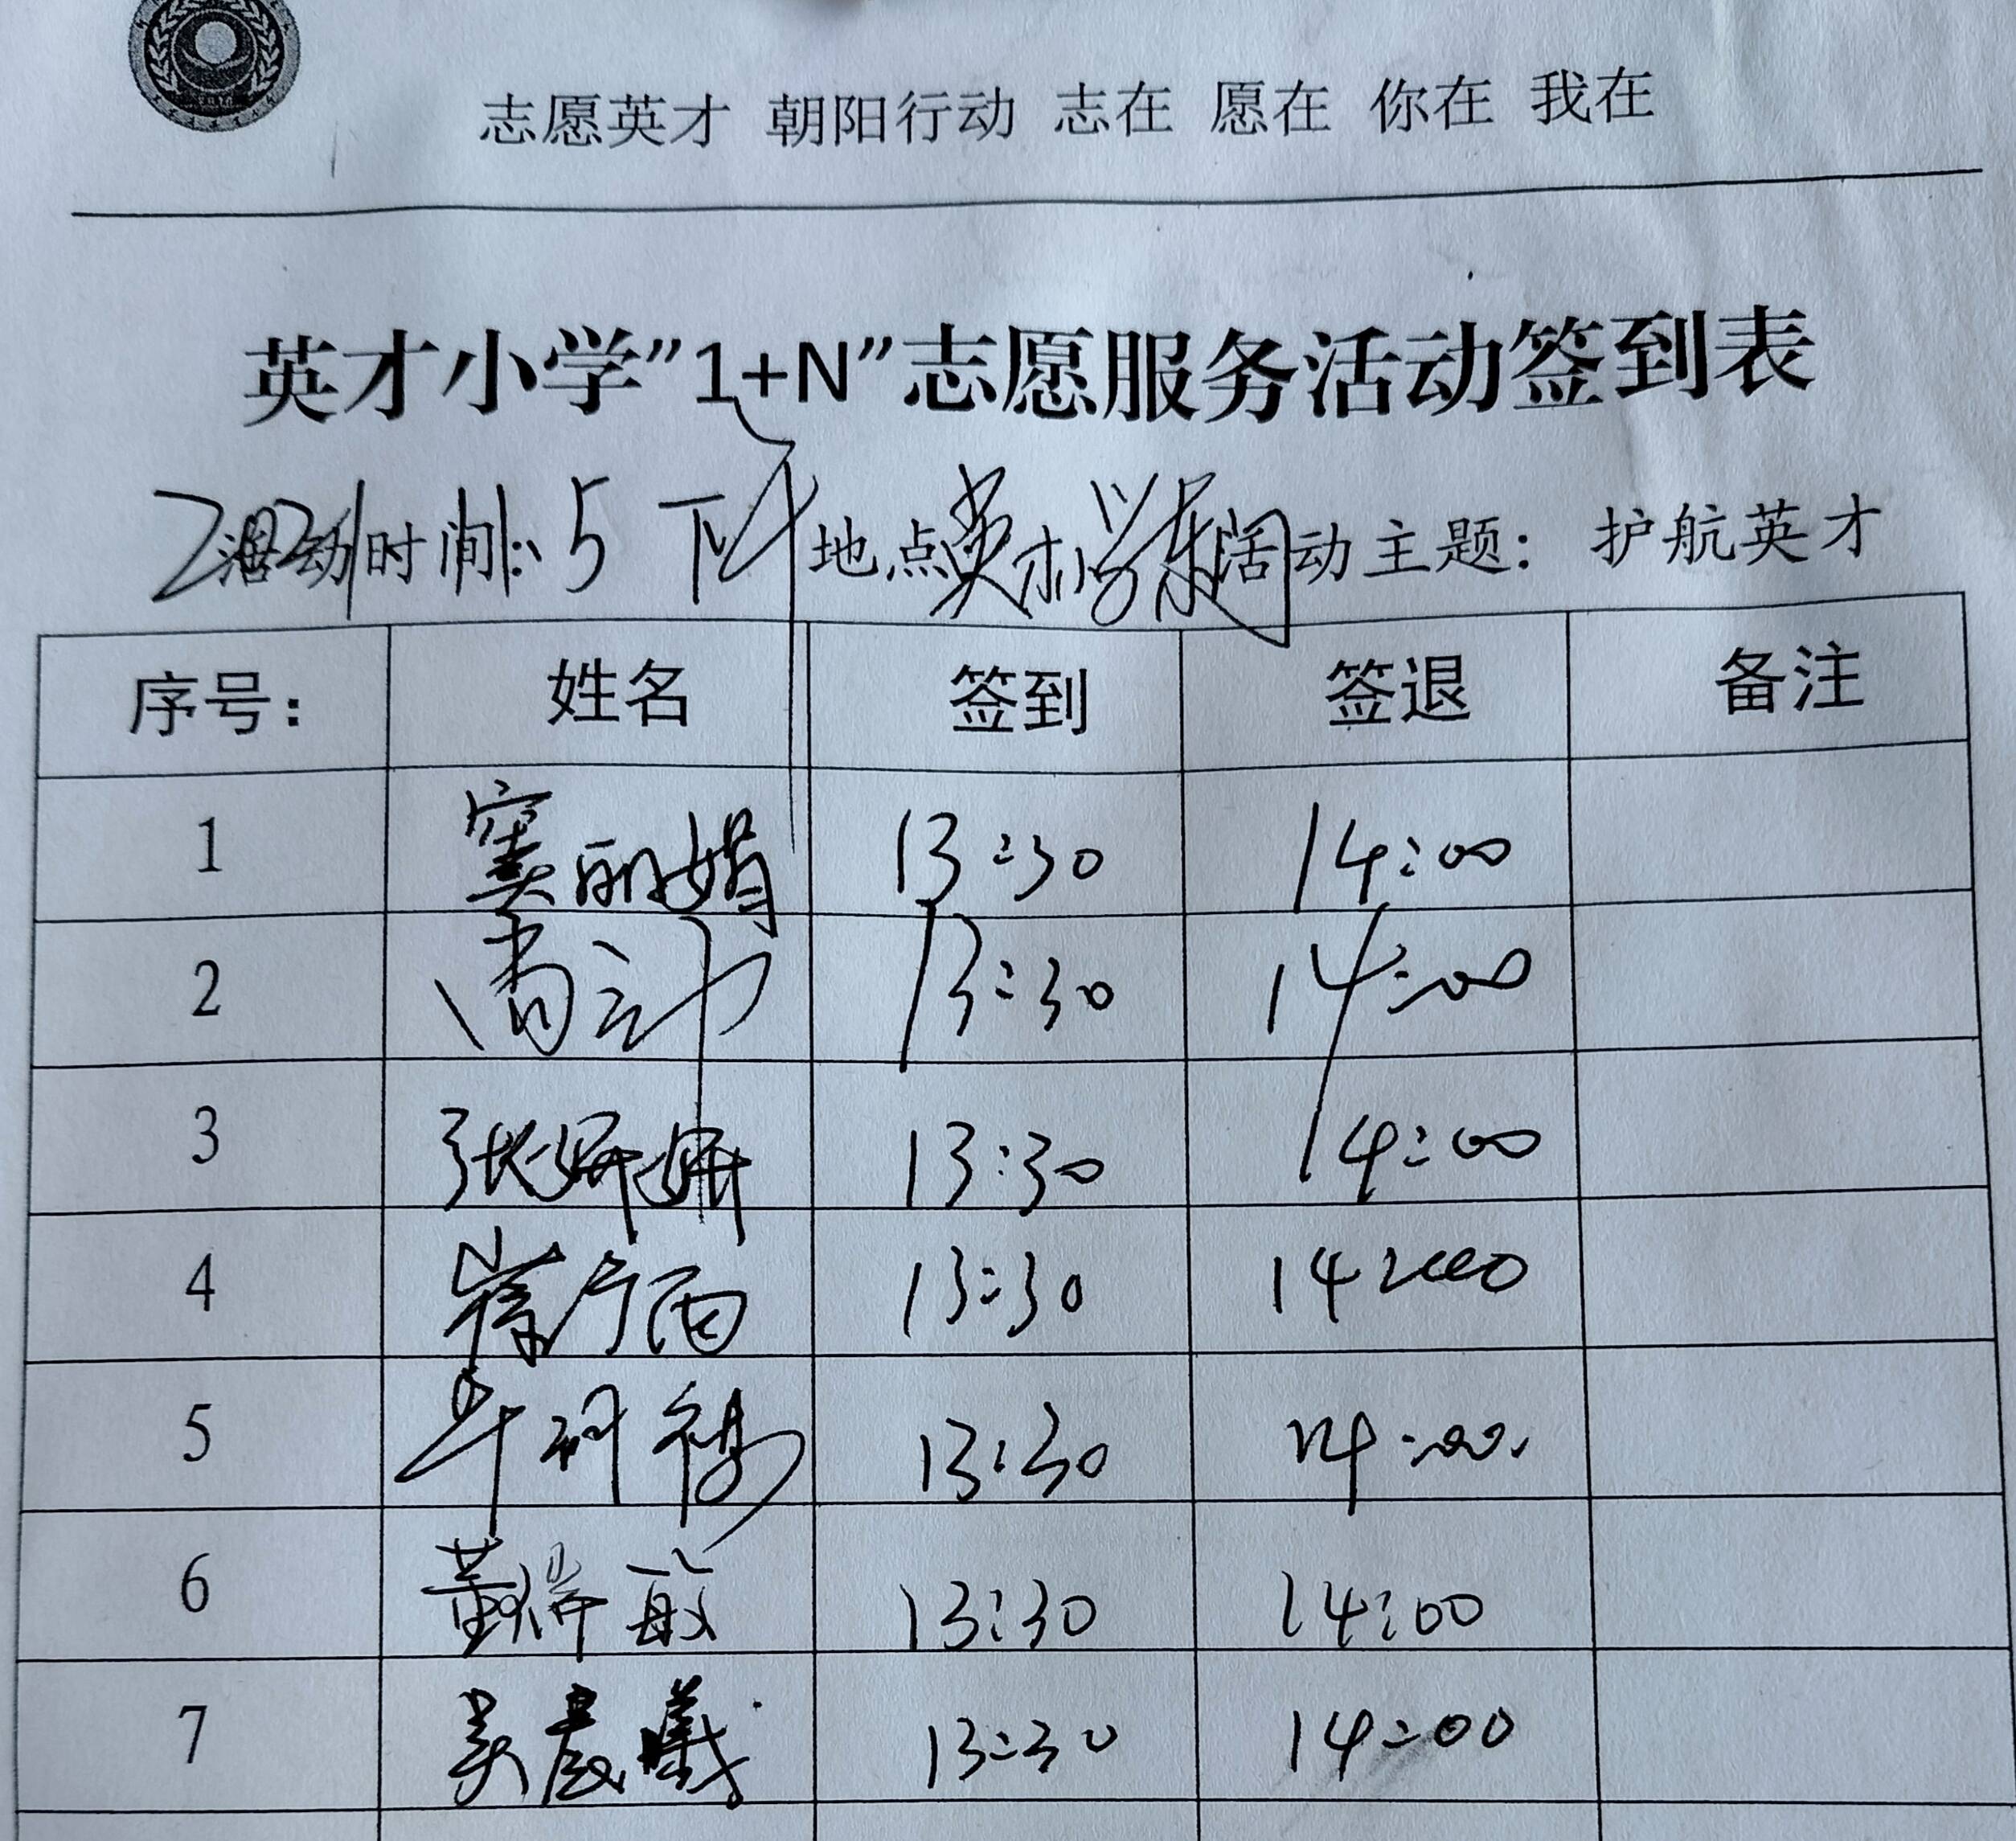 志愿英才 朝阳行动 志在 愿在 你在 我在
英才小学"1+N"志愿服务活动签到表
活动时间: 5 下午 地点 英才小学东 活动主题: 护航英才
序号: 姓名 签到 签退 备注
1 窦丽娟 13:30 14:00
2 13:30 14:00
3 张妍妍 13:30 14:00
4 雨 13:30 14:00
5 牛 13:30 14:00
6 黄瑞敏 13:30 14:00
7 吴晨曦 13:30 14:00